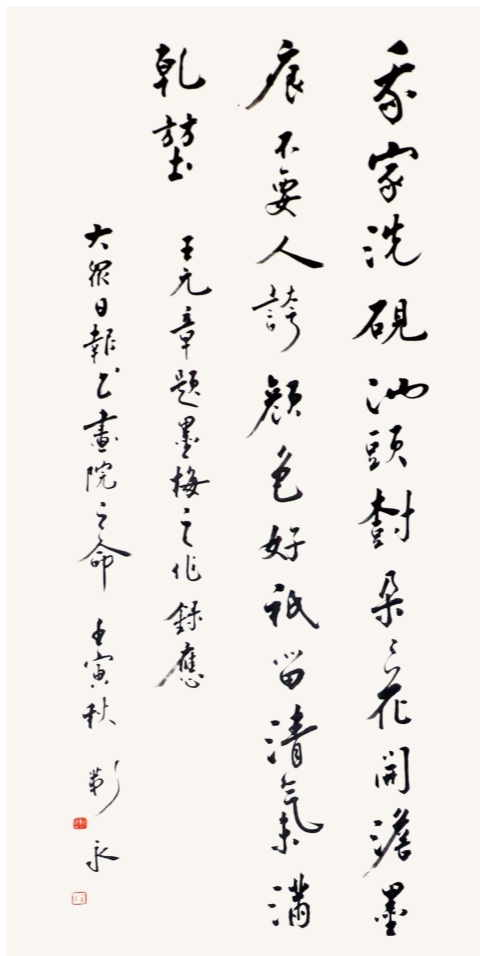 我家洗硯池頭樹朵〻花開澹墨
痕不要人誇顏色好祇留清氣滿
乾堃
王元章題墨梅之作録應
大衆日報书畫院之命 壬寅秋 永